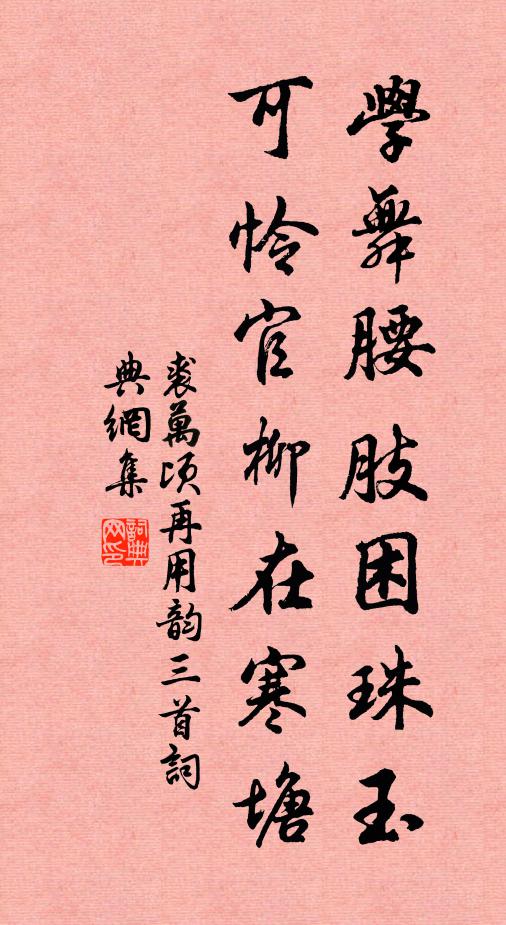 學舞腰肢困珠玉
可怜官柳在寒塘
裘萬頃再用韵三首詞
典網集
詞典網印